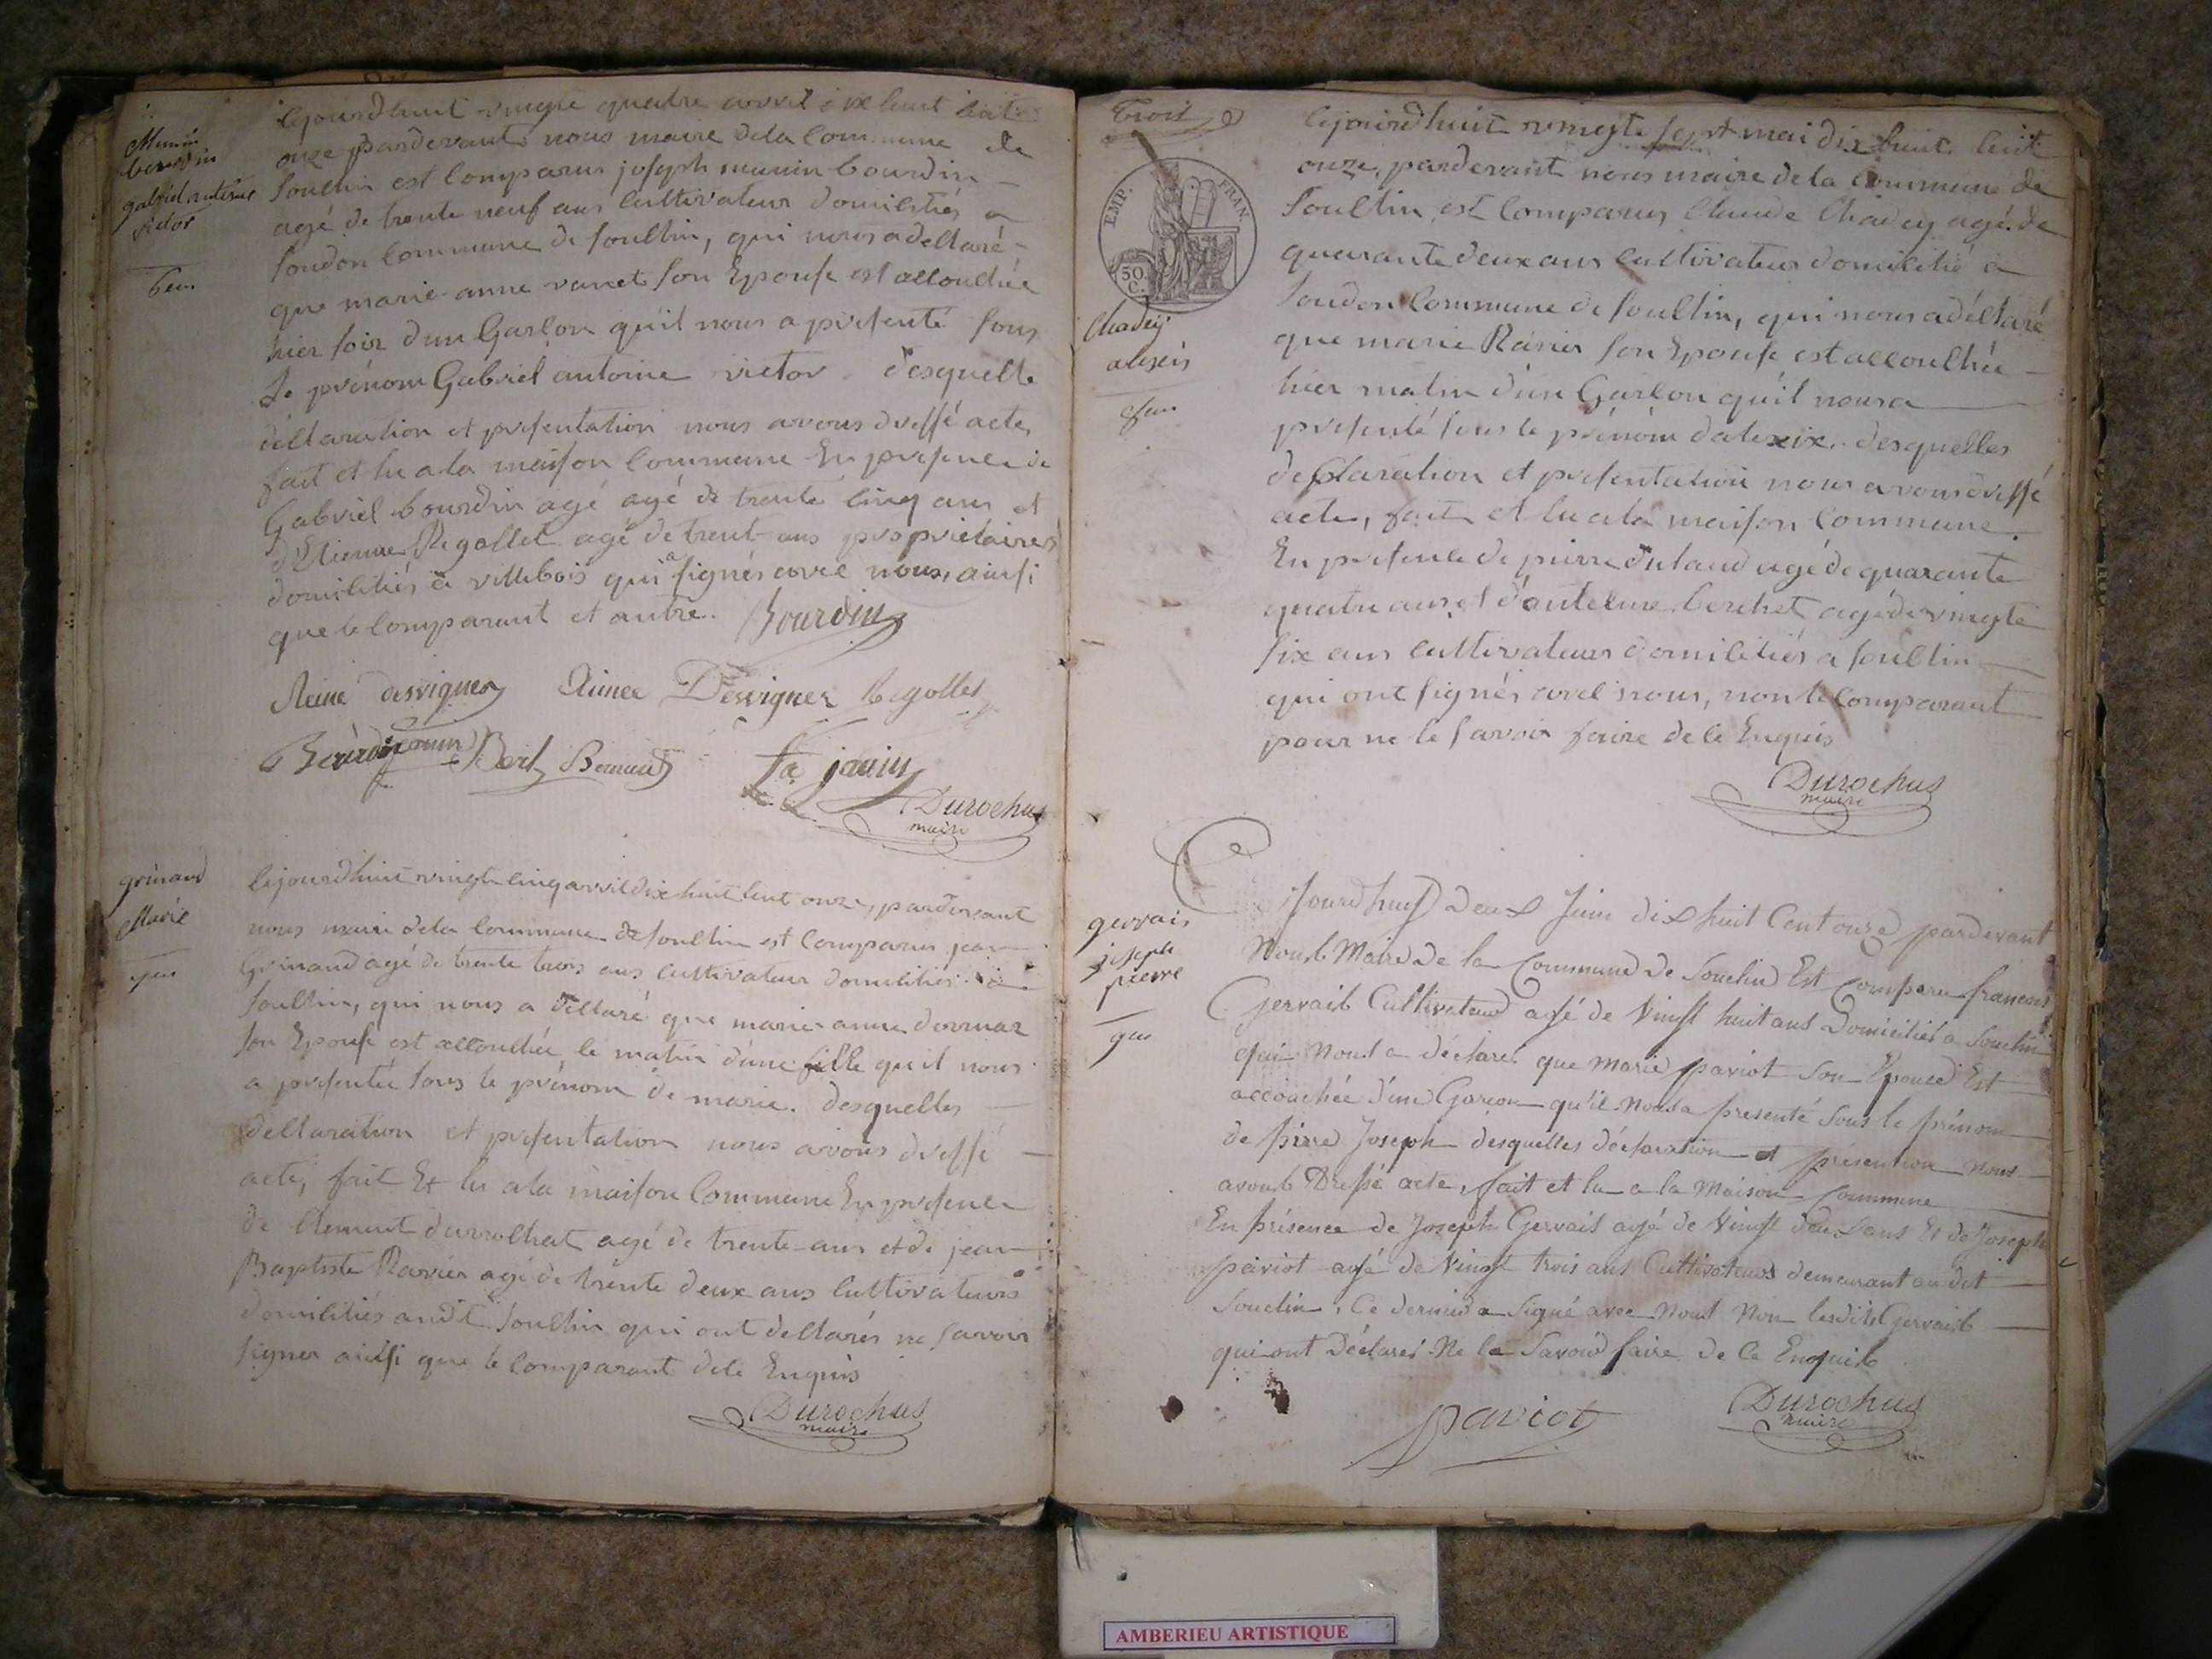 Munin
bourdin
gabriel antoine
victor
cejourdhuit vingte quatre avril dix huit cent
onze pardevant nous maire de la commune de
souclin est comparus joseph munin bourdin
agé de trente neuf ans cultivateur domiciliés a
soudon commune de souclin, qui nous a declaré
que marie anne vanet son Epouse est accouchée
hier soir d'un Garson qu'il nous a présenté sous
le prénom Gabriel antoine victor desquelle
déclaration et présentation nous avons dressé acte,
fait et lu a la maison commune En présence de
Gabriel bourdin agé agé de trente cinq ans et
d'Etienne Regollet agé de trent ans propriétaires
domiciliés a villebois qui signés avec nous, ainsi
que le comparant et autre. Bourdin
Reine desvignes Aimee Desvignes Regollet
Bert Bernard
Durochas
maire
grinand
Marie
cejourdhuit vingte cinq avril dix huit cent onze, pardevant
nous maire de la commune de souclin est comparus jean
Grinand agé de trente trois ans cultivateur domiciliés a
souclin, qui nous a déclaré que marie anne dormaz
son Epouse est accouchée le matin d'une fille qu'il nous
a présentée sous le prénom de marie. desquelles
déclaration et présentation nous avons dressé
acte, fait Et lu a la maison commune En présence
de clement durrochat agé de trente ans et de jean
Baptiste Ravier agé de trente deux ans cultivateurs
domiciliés audit souclin qui ont déclarés ne savoir
signer ainsi que le comparant de ce Enquis
Durochas
maire
Trois
EMP. FRAN.
50.
C.
Chadey
alexis
cejourdhuit vingte sept mai dix huit cent
onze, pardevant nous maire de la commune de
souclin est comparus Claude Chadey agé de
quarante deux ans cultivateur domicilié a
soudon commune de souclin, qui nous a déclaré
que marie Ravier son Epouse est accouchée
hier matin d'un Garson qu'il nous a
présenté sous le prénom d'alexix. desquelles
déclaration et présentation nous avons dressé
acte, fait et lu a la maison commune.
En présence de pierre dulaud agé de quarante
quatre ans et d'antelme berchet agé de vingte
six ans cultivateurs domiciliés a souclin
qui ont signés avec nous, non le comparant
pour ne le savoir faire de ce Enquis
Durochas
maire
gervais
joseph
pierre
Cejourdhuy deux Juin dix huit Cent onze pardevant
Nous Maire de la Commune de Souclin Est Comparu francois
Gervais Cultivateur agé de Vingt huit ans Domicilié a Souclin
qui Nous a déclaré que Marie pariot son Epouse Est
accouchée d'un Garcon qu'il Nous a presenté sous le prénom
de pierre Joseph desquelles déclaration et présention nous
avons Dressé acte, fait et lu a la Maison Commune
En présence de Joseph Gervais agé de Vingt deux ans Et de Joseph
pariot agé de Vingt trois ans Cultivateurs demeurant au dit
Souclin, Ce dernier a signé avec Nous Non lesdits Gervais
qui ont Déclarés Ne le Savoir faire de Ce Enquis
pariot
Durochas
maire
AMBERIEU ARTISTIQUE